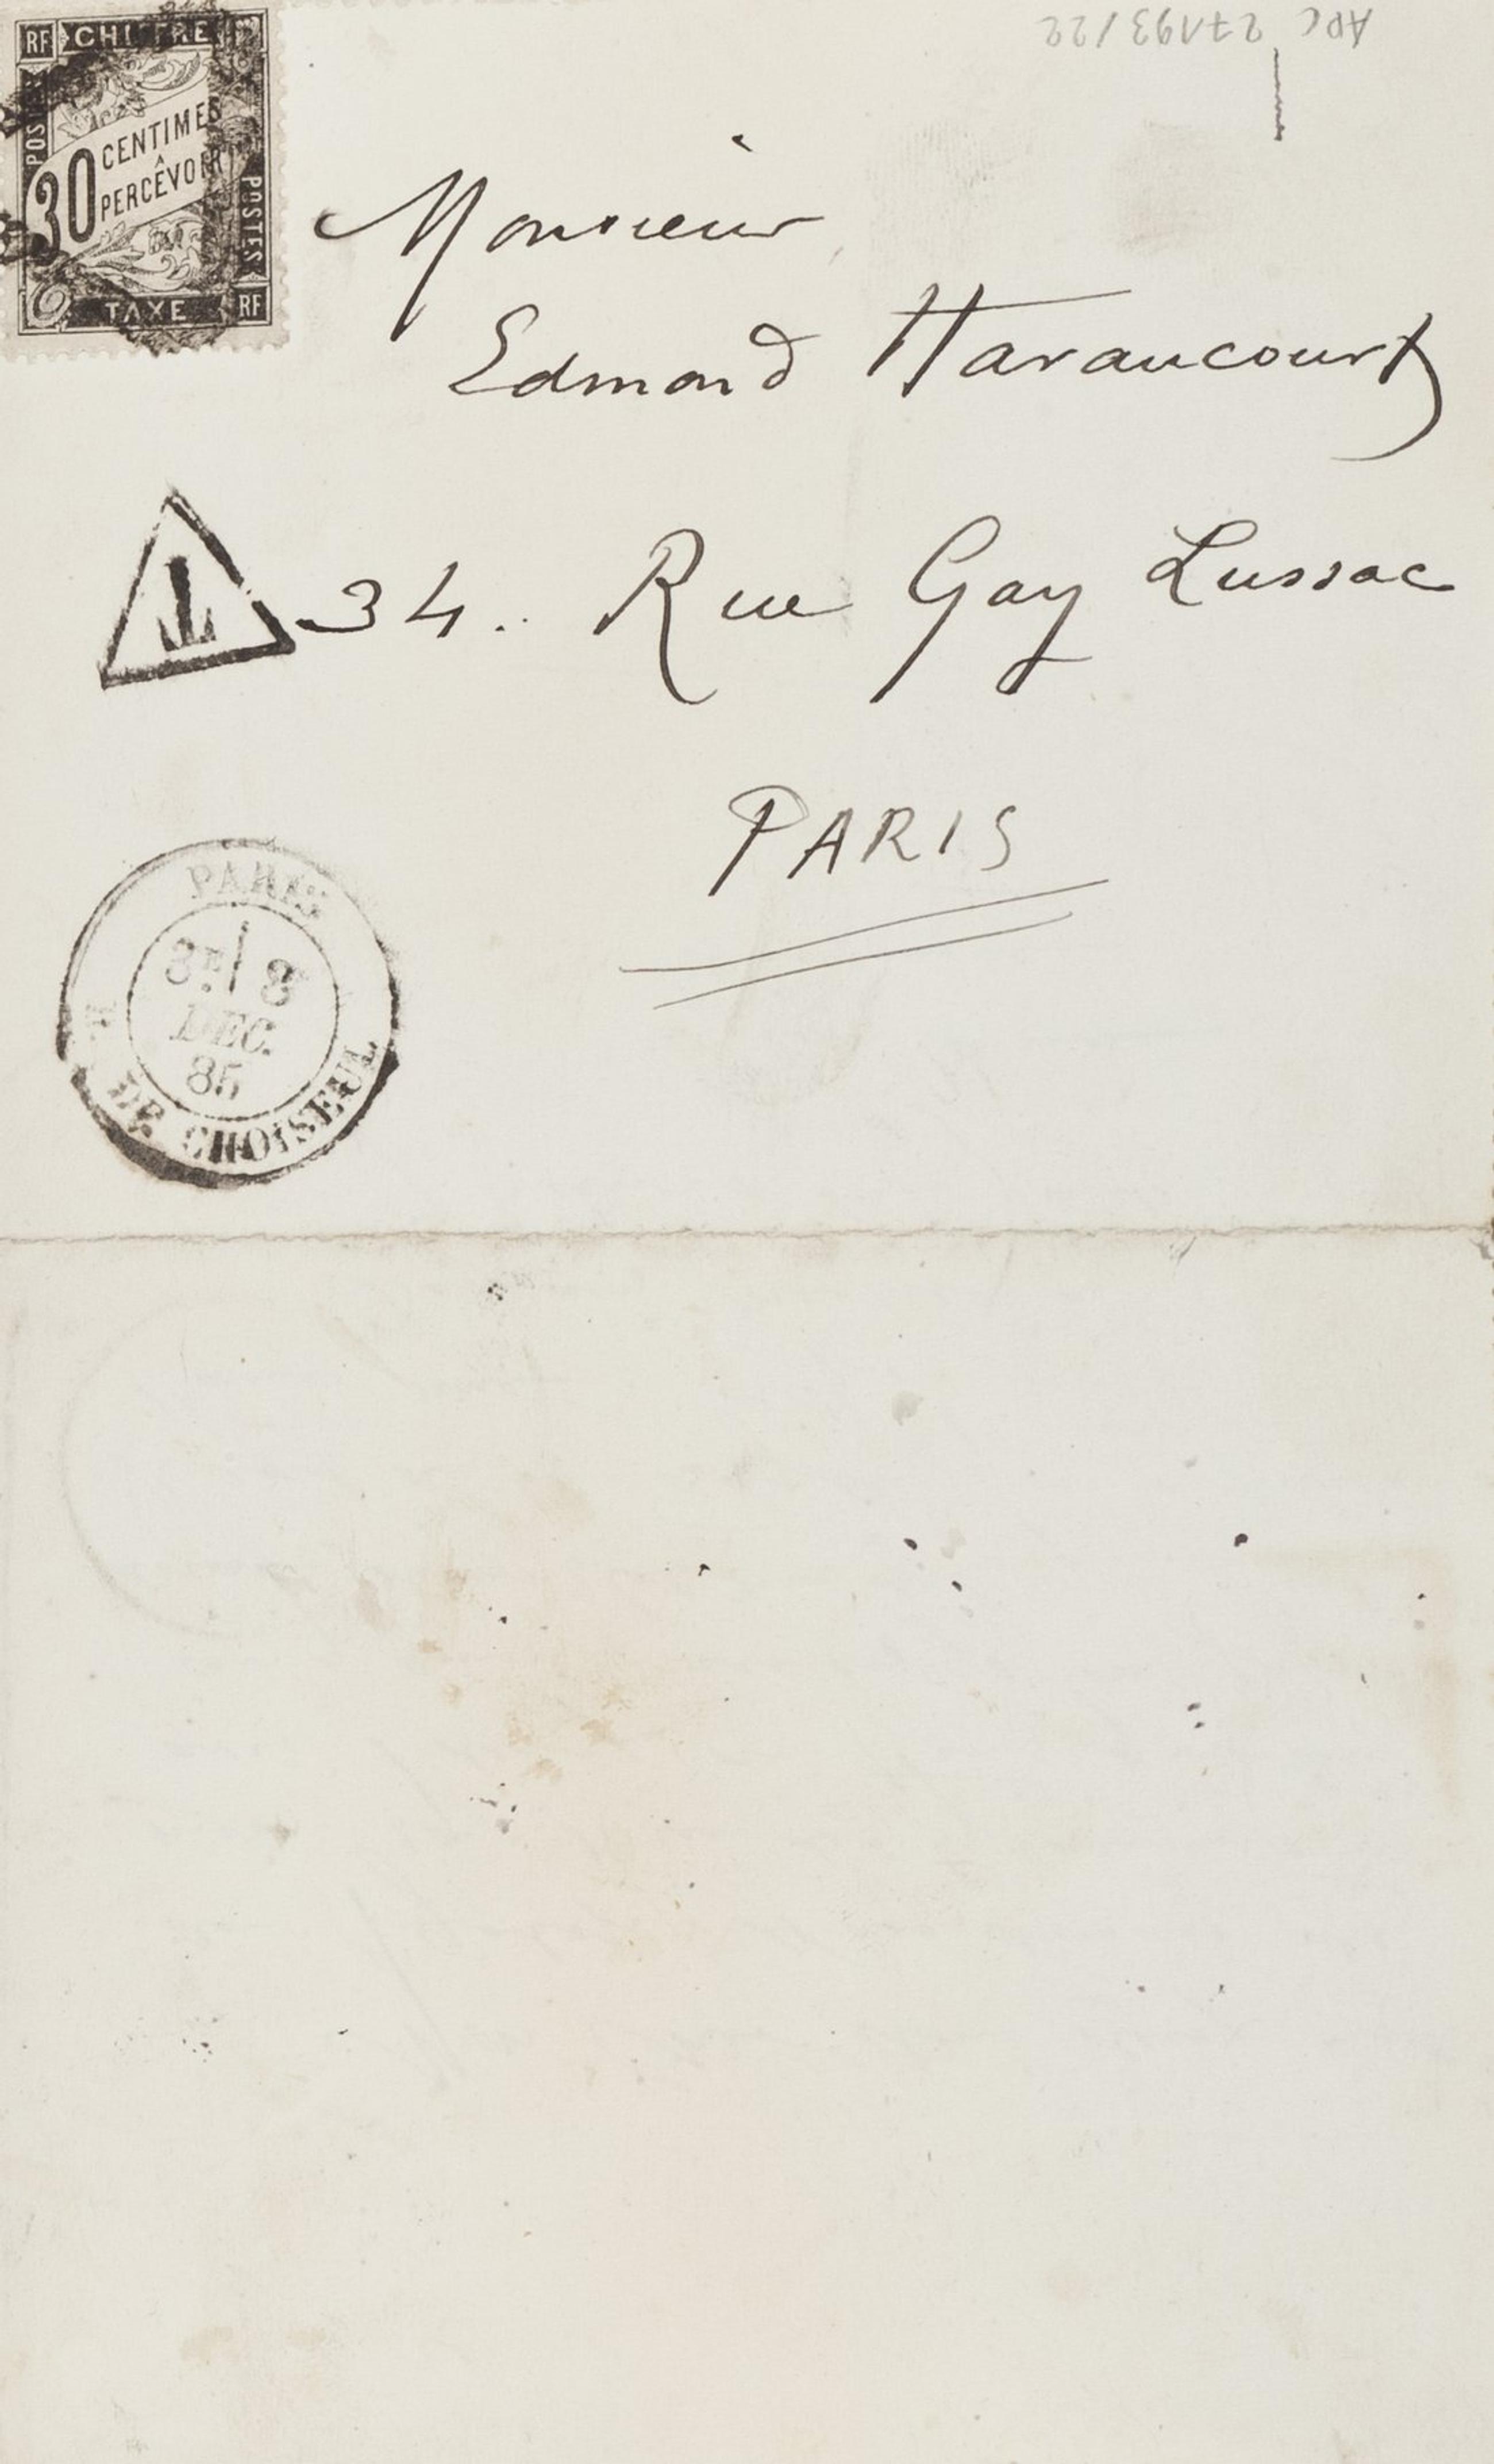 APC 27193/22
RF CHIFFRE
POSTES
30 CENTIMES
À
PERCEVOIR
POSTES
TAXE RF
Monsieur
Edmond Haraucourt
T
34. Rue Gay Lussac
PARIS
PARIS
8
DEC.
85
DE CHOISEUL